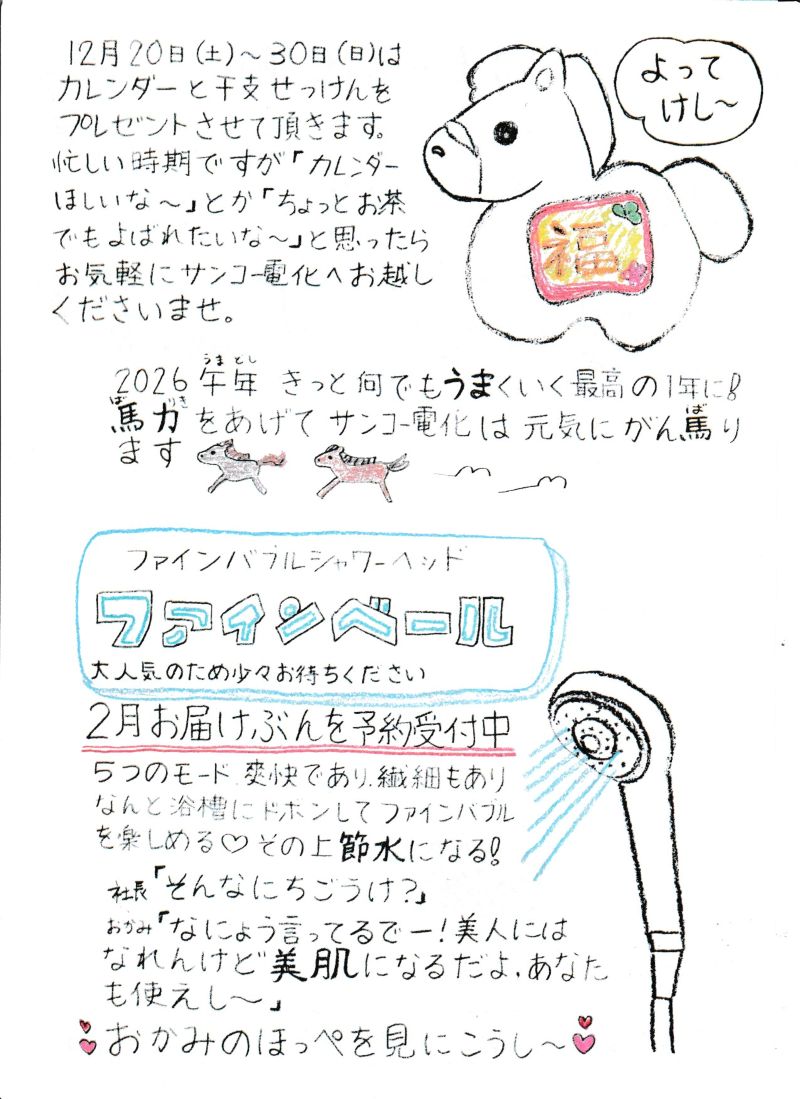 12月20日(土)～30日(日)は
カレンダーと干支せっけんを
プレゼントさせて頂きます。
忙しい時期ですが「カレンダー
ほしいな～」とか「ちょっとお茶
でもよばれたいな～」と思ったら
お気軽にサンコー電化へお越し
くださいませ。
よって
けし～
福
うま とし
2026 午年 きっと何でもうまくいく最高の1年に!
ば りき ば
馬力をあげてサンコー電化は元気にがん馬り
ます
ファインバブルシャワーヘッド
ファインベール
大人気のため少々お待ちください
2月お届けぶんを予約受付中
5つのモード、爽快であり、繊細もあり
なんと浴槽にドボンしてファインバブル
を楽しめる♡その上節水になる!
社長「そんなにちごうけ?」
おかみ「なにょう言ってるでー!美人には
なれんけど美肌になるだよ、あなた
も使えし～」
おかみのほっぺを見にこうし～